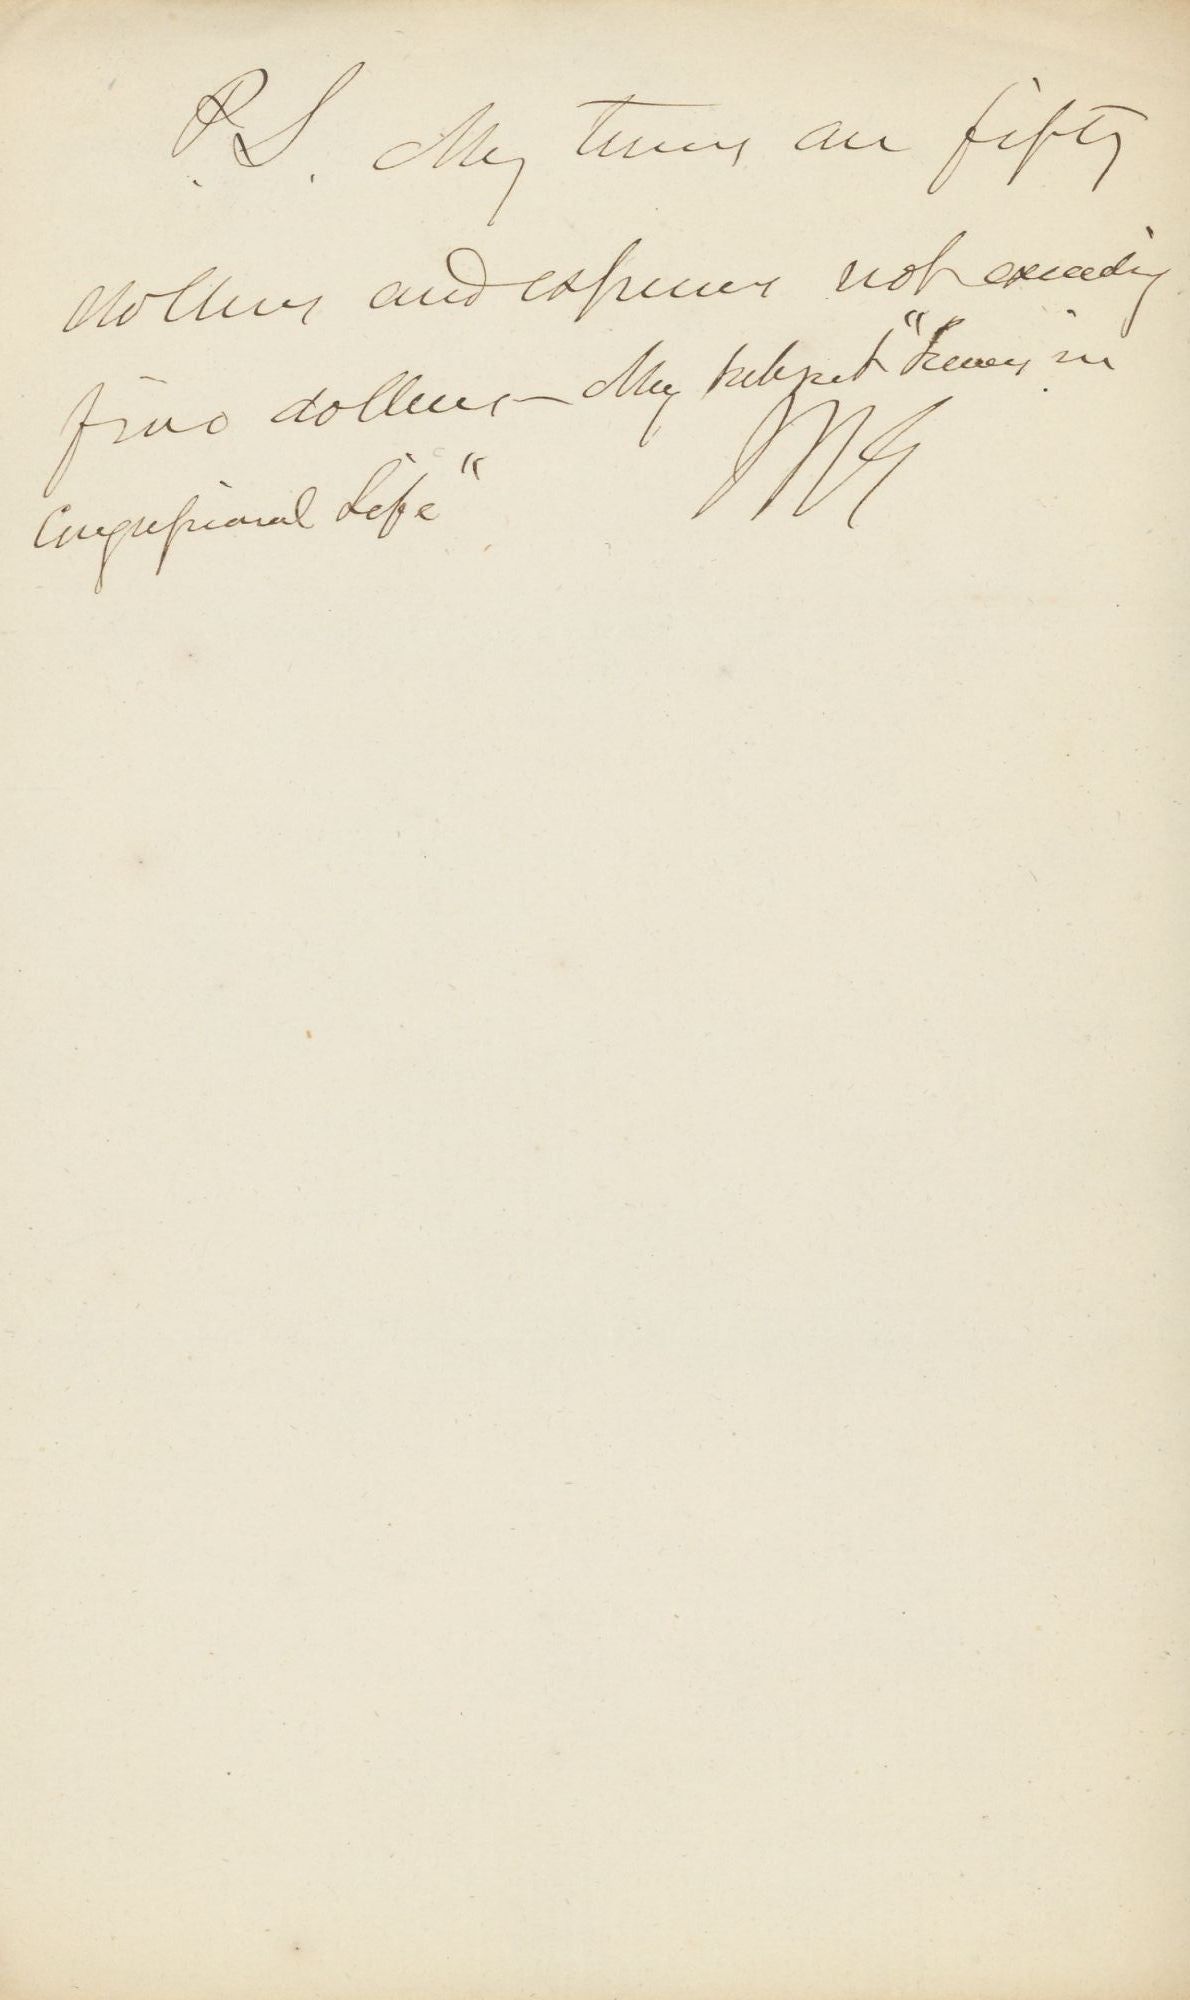 P.S. My terms are fifty
dollars and expenses not exceeding
five dollars — My subject " in
Congressional Life"